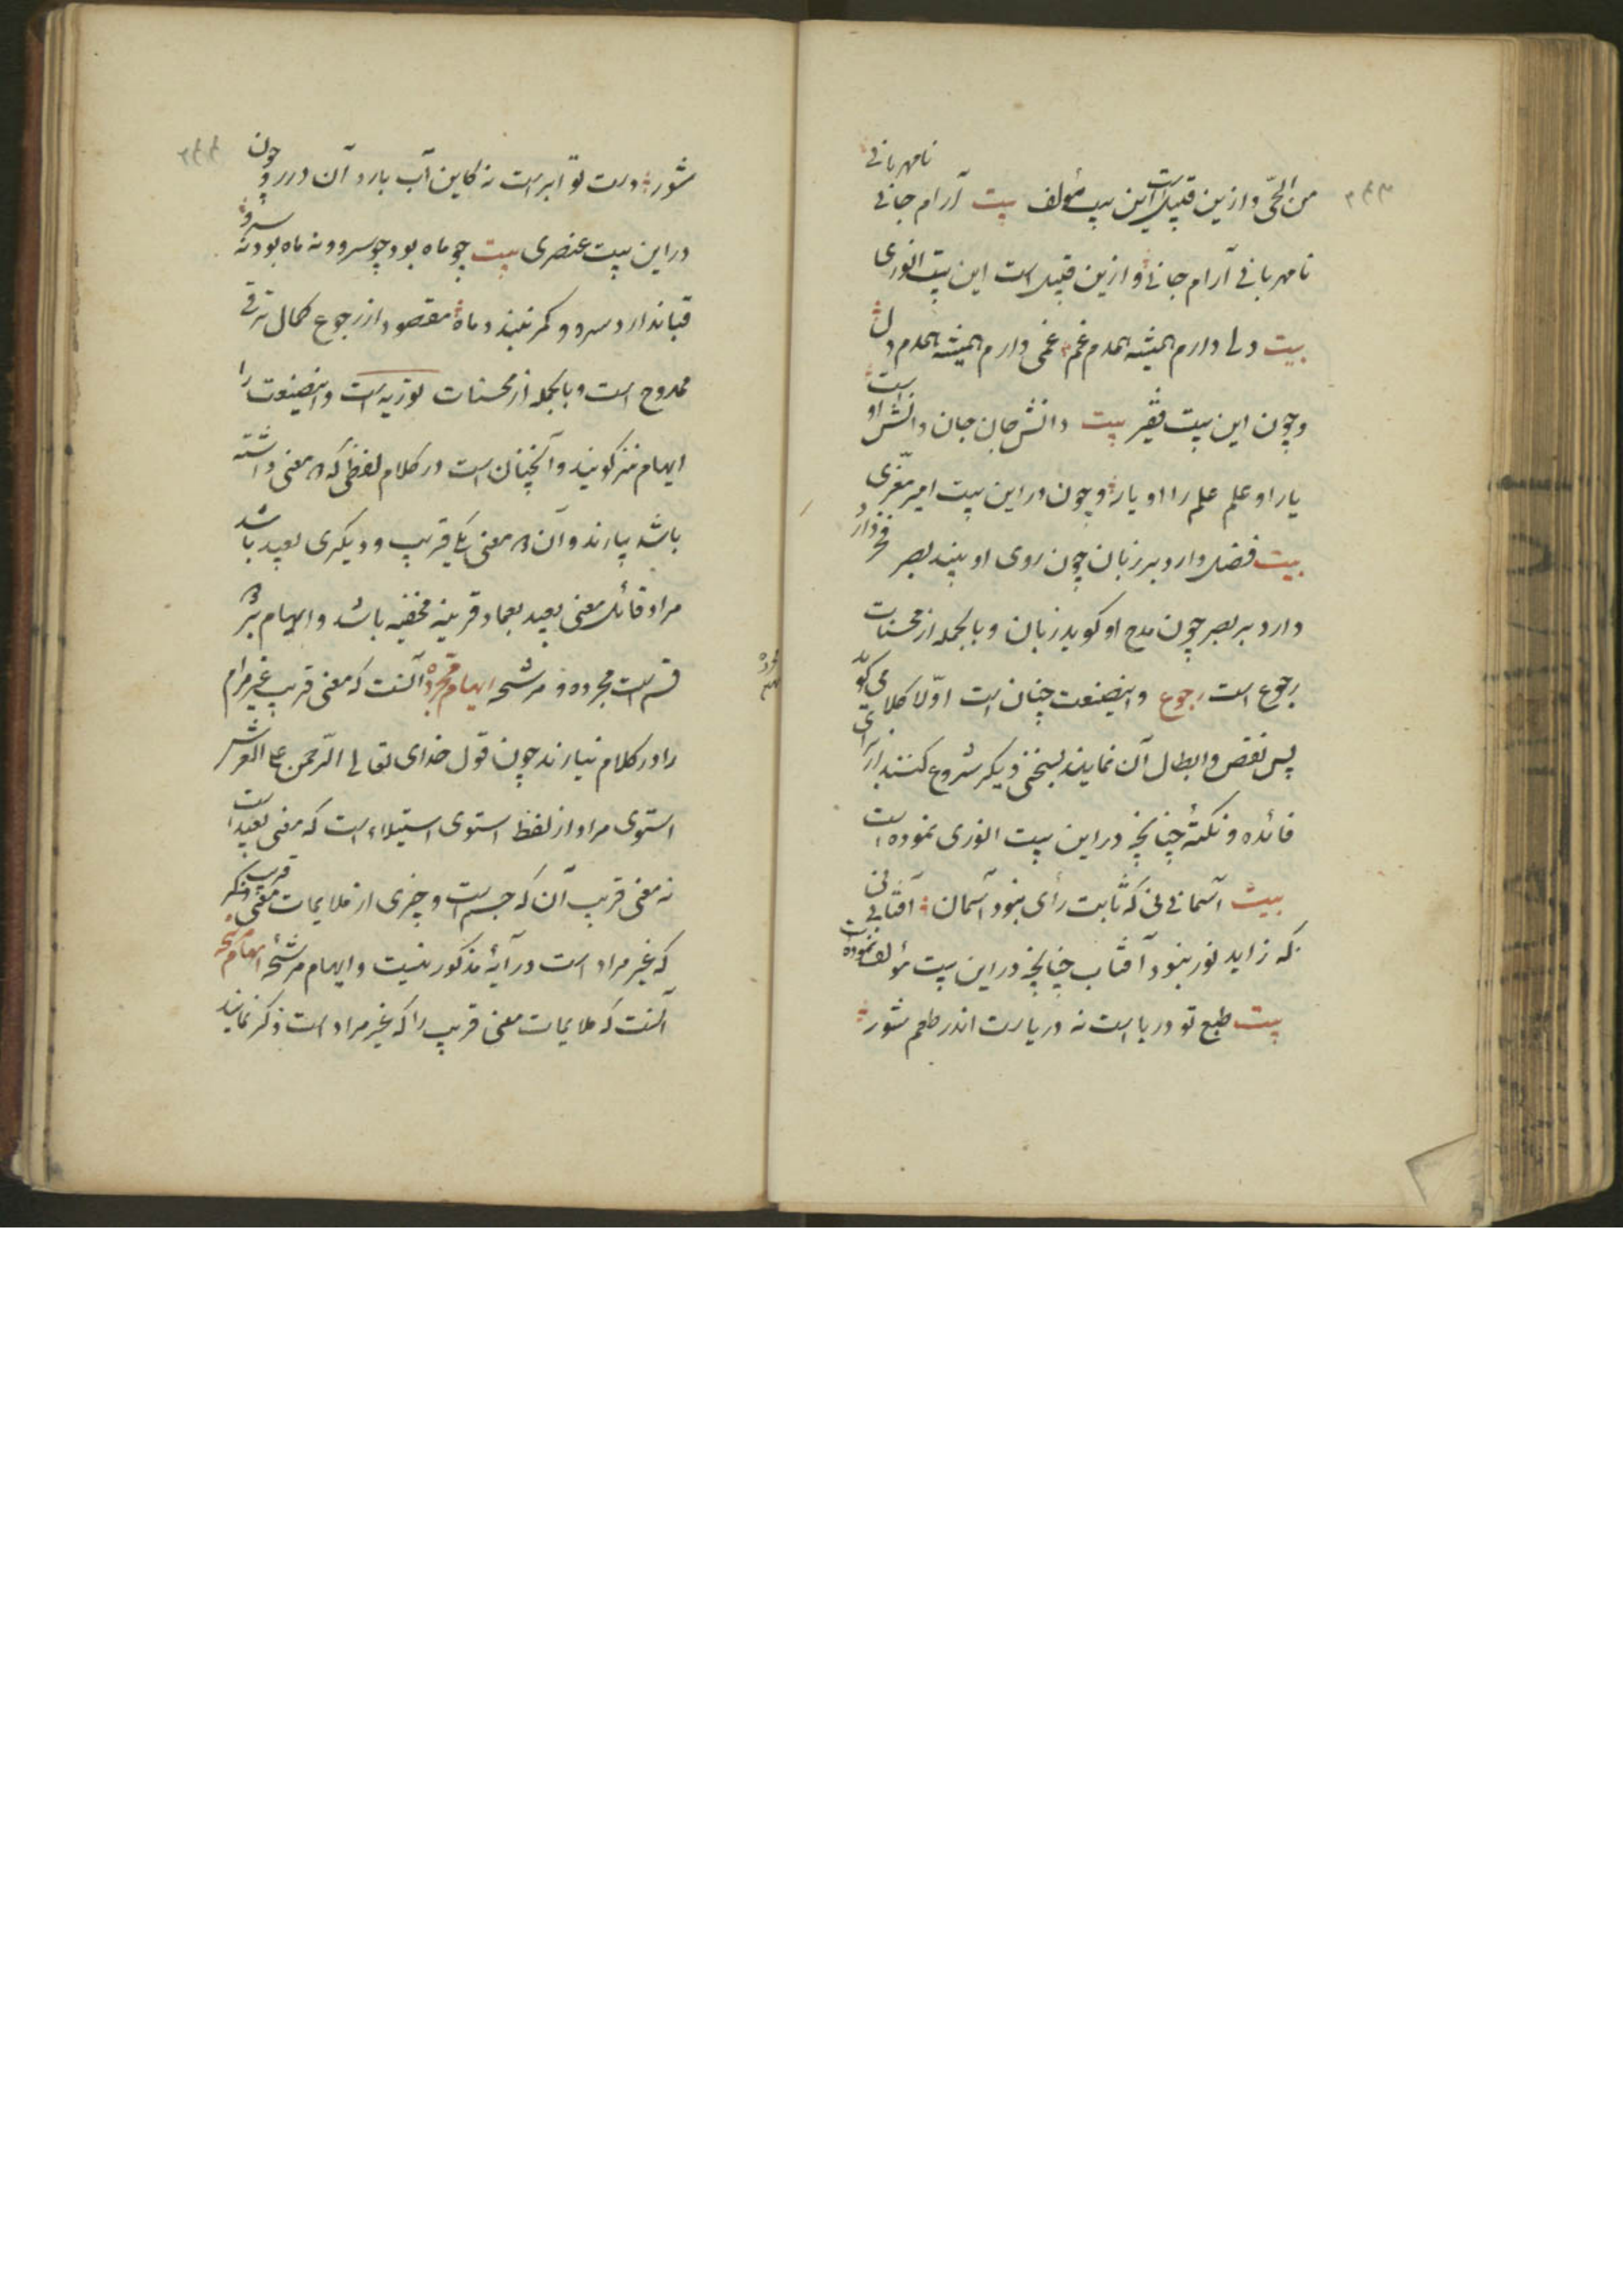 من الحیّ وازین قبیل است این بیت مؤلف بیت آرام جانے نامهربانے
نامهربانے آرام جانے وازین قبیل است این بیت انوری
بیت دلے دارم همیشه همدم غم غمی دارم همیشه همدم دل
وچون این بیت فقیر بیت دانش جان جان دانش است او
یار او علم علم را او یار وچون در این بیت امیر معزّی
بیت فضل دارد بر زبان چون روی او بیند بصر فخر دارد
دارد بر بصر چون مدح او کوید زبان وبالجمله از محسنات
رجوع است رجوع واینصنعت چنان است اوّلا کلامی کو
پس نقض وابطال آن نمایند بسخنی دیکر شروع کنند از برای
فائده ونکتهٔ چنانچه در این بیت انوری نموده است
بیت آسمانے نی که ثابت رأی نبود آسمان آفتابے نی
که زاید نور نبود آفتاب چنانچه در این بیت مؤلف نموده است
بیت طبع تو دریا است نه دریاست اندر طعم شور
شور دست تو ابر است نه کاین آب بارد آن درر وچون
در این بیت عنصری بیت چو ماه بود وچو سرو ونه ماه بود نه سرو
قبا ندارد سرو وکمر نبندد ماه مقصود از رجوع کمال ترقی
ممدوح است وبالجمله از محسنات توریه است واینصنعت را
ایهام نیز کویند وآنچنان است در کلام لفظی که ۲ معنی داشته
باشد بیارند وآن ۲ معنی یکے قریب ودیکری بعید باشد
مراد قائل معنی بعید بعماد قرینه مخفیه باشد وایهام بر ۲
قسم است مجرده ومرشحه ایهام مجرده آنست که معنی قریب غیر مرام
را در کلام نیارند چون قول خدای تعالے الرّحمن علے العرش
استوی مراد از لفظ استوی استیلاء است که معنی بعید است
نه معنی قریب آن که جسم است وچیزی از ملایمات معنی قریب
که غیر مراد است در آیهٔ مذکور نیست وایهام مرشحه ایهام مرشحه
آنست که ملایمات معنی قریب را که غیر مراد است ذکر نمایند